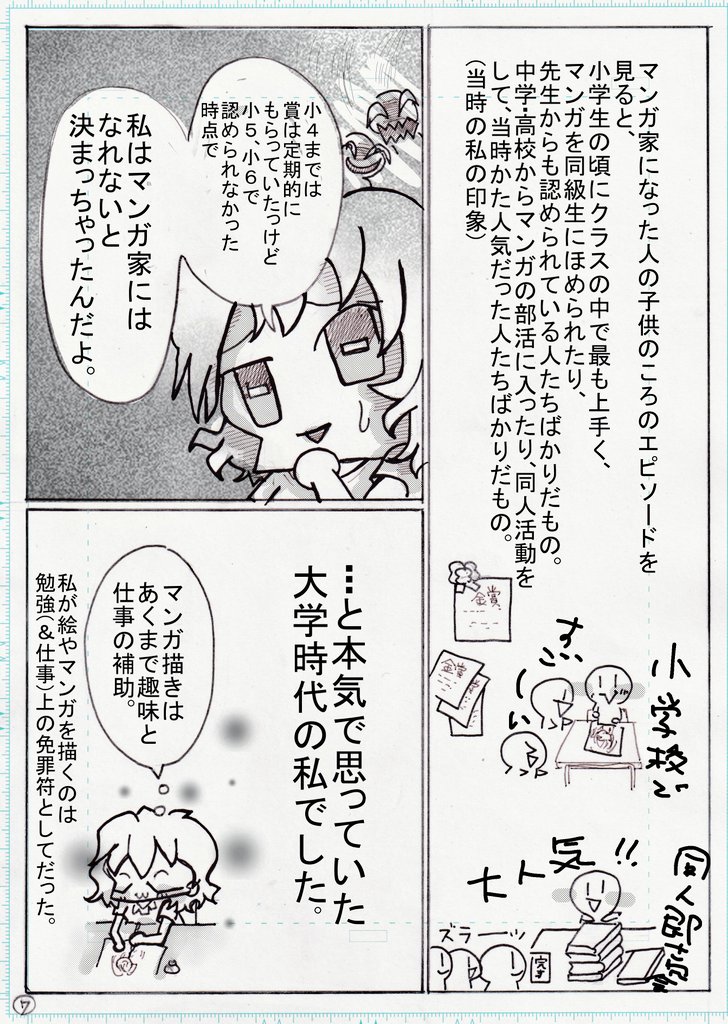 マンガ家になった人の子供のころのエピソードを
見ると、
小学生の頃にクラスの中で最も上手く、
マンガを同級生にほめられたり、
先生からも認められている人たちばかりだもの。
中学・高校からマンガの部活に入ったり、同人活動を
して、当時かた人気だった人たちばかりだもの。
（当時の私の印象）
小学校で
金賞
金賞
すっごーい
同人活動
大人気!!
ズラーッ
小4までは
賞は定期的に
もらっていたっけど
小5、小6で
認められなかった
時点で
私はマンガ家には
なれないと
決まっちゃったんだよ。
…と本気で思っていた
大学時代の私でした。
マンガ描きは
あくまで趣味と
仕事の補助。
私が絵やマンガを描くのは
勉強（＆仕事）上の免罪符としてだった。
7